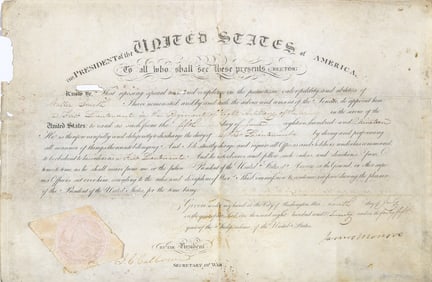 THE PRESIDENT of the UNITED STATES of AMERICA,
To all who shall see these presents GREETING:
Know Ye, That reposing special trust and confidence in the patriotism, valor, fidelity and abilities of
Smith I have nominated, and by and with the advice and consent of the Senate, do appoint him
First Lieutenant in the Regiment of in the service of the
United States: to rank as such from the day of eighteen hundred and
He is therefore carefully and diligently to discharge the duty of First Lieutenant by doing and performing
all manner of things thereunto belonging. And I do strictly charge and require all Officers and Soldiers under his command
to be obedient to his orders as First Lieutenant. And he is to observe and follow such orders and directions, from
time to time, as he shall receive from me, or the future President of the United States of America, or the General or other
Officers set over him, according to the rules and discipline of War. This Commission to continue in force during the pleasure
of the President of the United States, for the time being.
Given under my hand, at the City of Washington, this day of July
in the year of our Lord, one thousand eight hundred and and in the
year of the Independence of the United States.
By the President
James Monroe
J. C. Calhoun
SECRETARY OF WAR